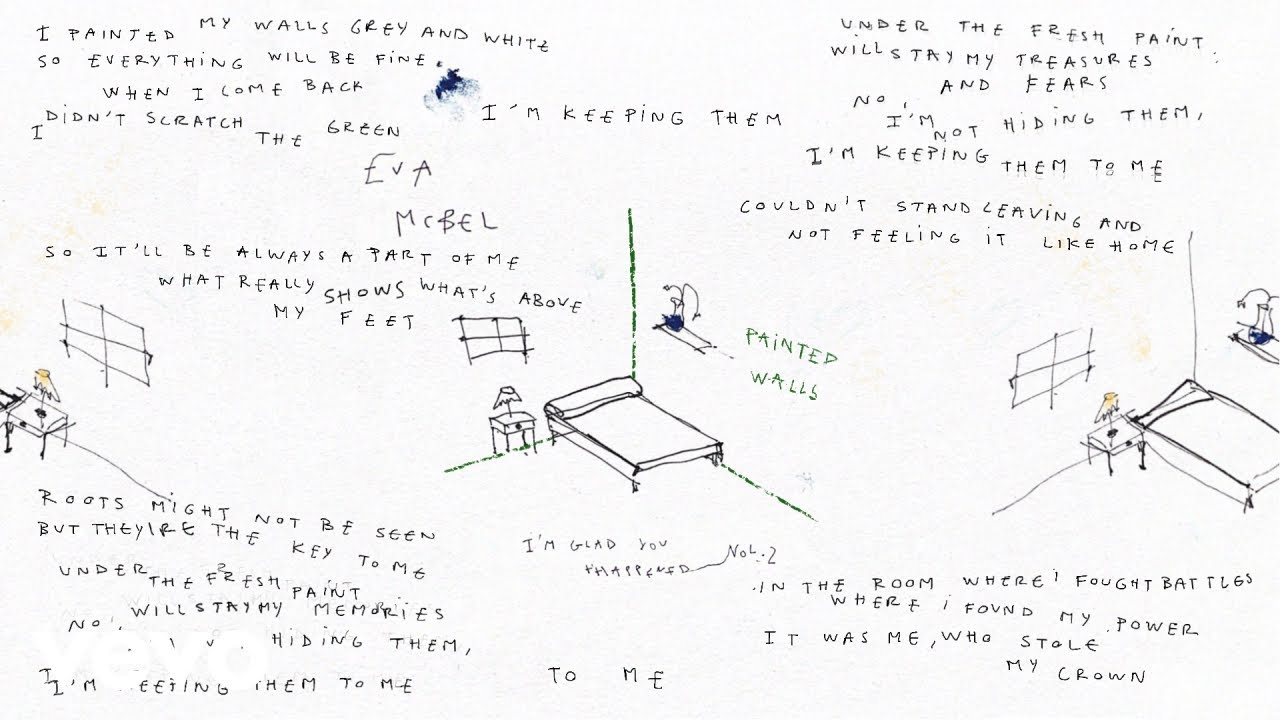 I PAINTED MY WALLS GREY AND WHITE
SO EVERYTHING WILL BE FINE
WHEN I COME BACK
I DIDN'T SCRATCH THE GREEN
EVA
MCBEL
SO IT'LL BE ALWAYS A PART OF ME
WHAT REALLY SHOWS WHAT'S ABOVE
MY FEET
I'M KEEPING THEM
UNDER THE FRESH PAINT
WILL STAY MY TREASURES
AND FEARS
NO, I'M NOT HIDING THEM,
I'M KEEPING THEM TO ME
COULDN'T STAND LEAVING AND
NOT FEELING IT LIKE HOME
PAINTED
WALLS
ROOTS MIGHT NOT BE SEEN
BUT THEY'RE THE KEY TO ME
UNDER THE FRESH PAINT
WILL STAY MY MEMORIES
NO, HIDING THEM,
I'M KEEPING THEM TO ME
vevo
I'M GLAD YOU
HAPPENED VOL.2
TO ME
IN THE ROOM WHERE I FOUGHT BATTLES
WHERE I FOUND MY POWER
IT WAS ME, WHO STOLE
MY CROWN